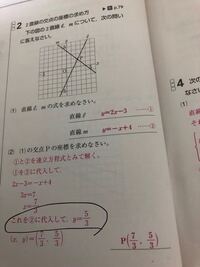 2 2直線の交点の座標の求め方 p.79
下の図の2直線ℓ, mについて,次の問い
に答えなさい。
(1) 直線ℓ, mの式を求めなさい。
直線ℓ y=2x-3 ……①
直線m y=-x+4 ……②
(2) (1)の交点Pの座標を求めなさい。
①と②を連立方程式とみて解く。
①を②に代入して,
2x-3=-x+4
3x=7
x=7/3
これを②に代入して, y=5/3
(x, y)=(7/3, 5/3)
P(7/3, 5/3)
4 次の
(1)